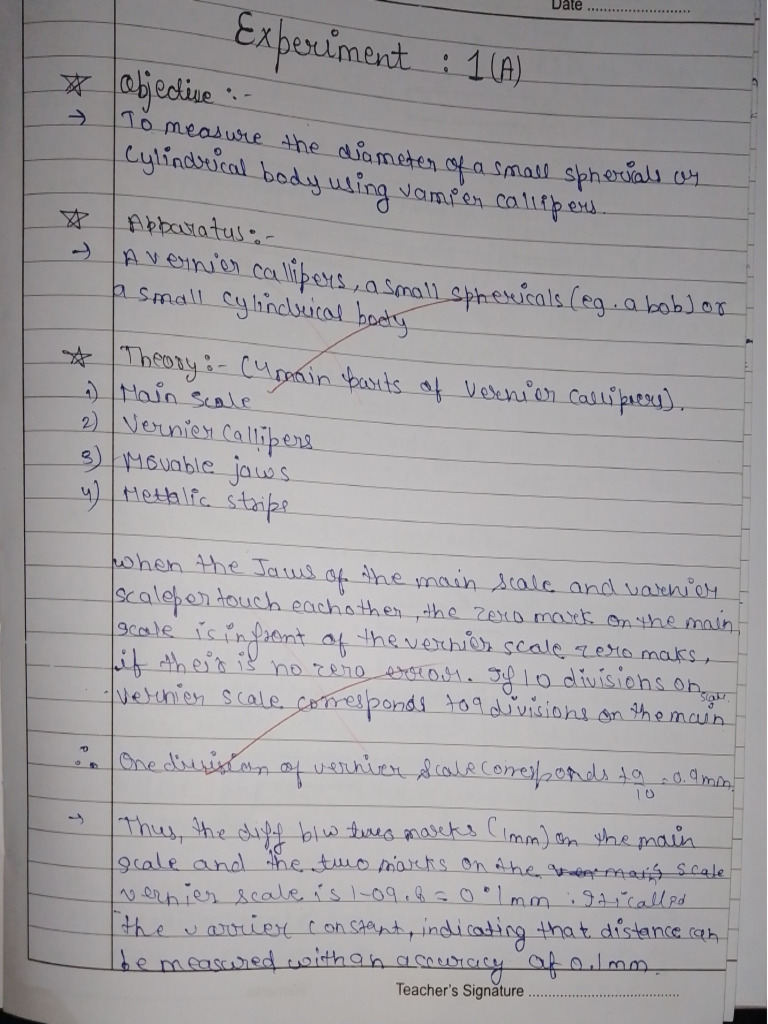 Date ........................
Experiment : 1(A)
☆ Objective :-
→ To measure the diameter of a small spherials or
Cylindrical body using varnier callipers.
☆ Apparatus :-
→ A vernier callipers, a small sphericals (eg. a bob) or
a small cylindrical body
☆ Theory :- (4 main parts of Vernier Callipiers).
1) Main Scale
2) Vernier Callipers
3) Movable jaws
4) Mettalic stripe
when the Jaws of the main scale and varnier
scaleper touch eachother, the zero mark on the main
scale is infront of the vernier scale zero maks,
if their is no zero error. If 10 divisions on
vernier scale corresponds to 9 divisions on the main scale
∴ One division of vernier scale corresponds to 9/10 = 0.9mm
→ Thus, the diff b/w two marks (1mm) on the main
scale and the two marks on the scale
vernier scale is 1-09.8 = 0.1mm. It is called
the varrier constant, indicating that distance can
be measured with an accuracy of 0.1mm.
Teacher's Signature ....................................